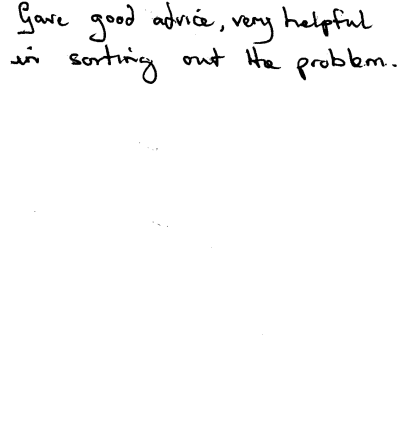 Gave good advice, very helpful
in sorting out the problem.